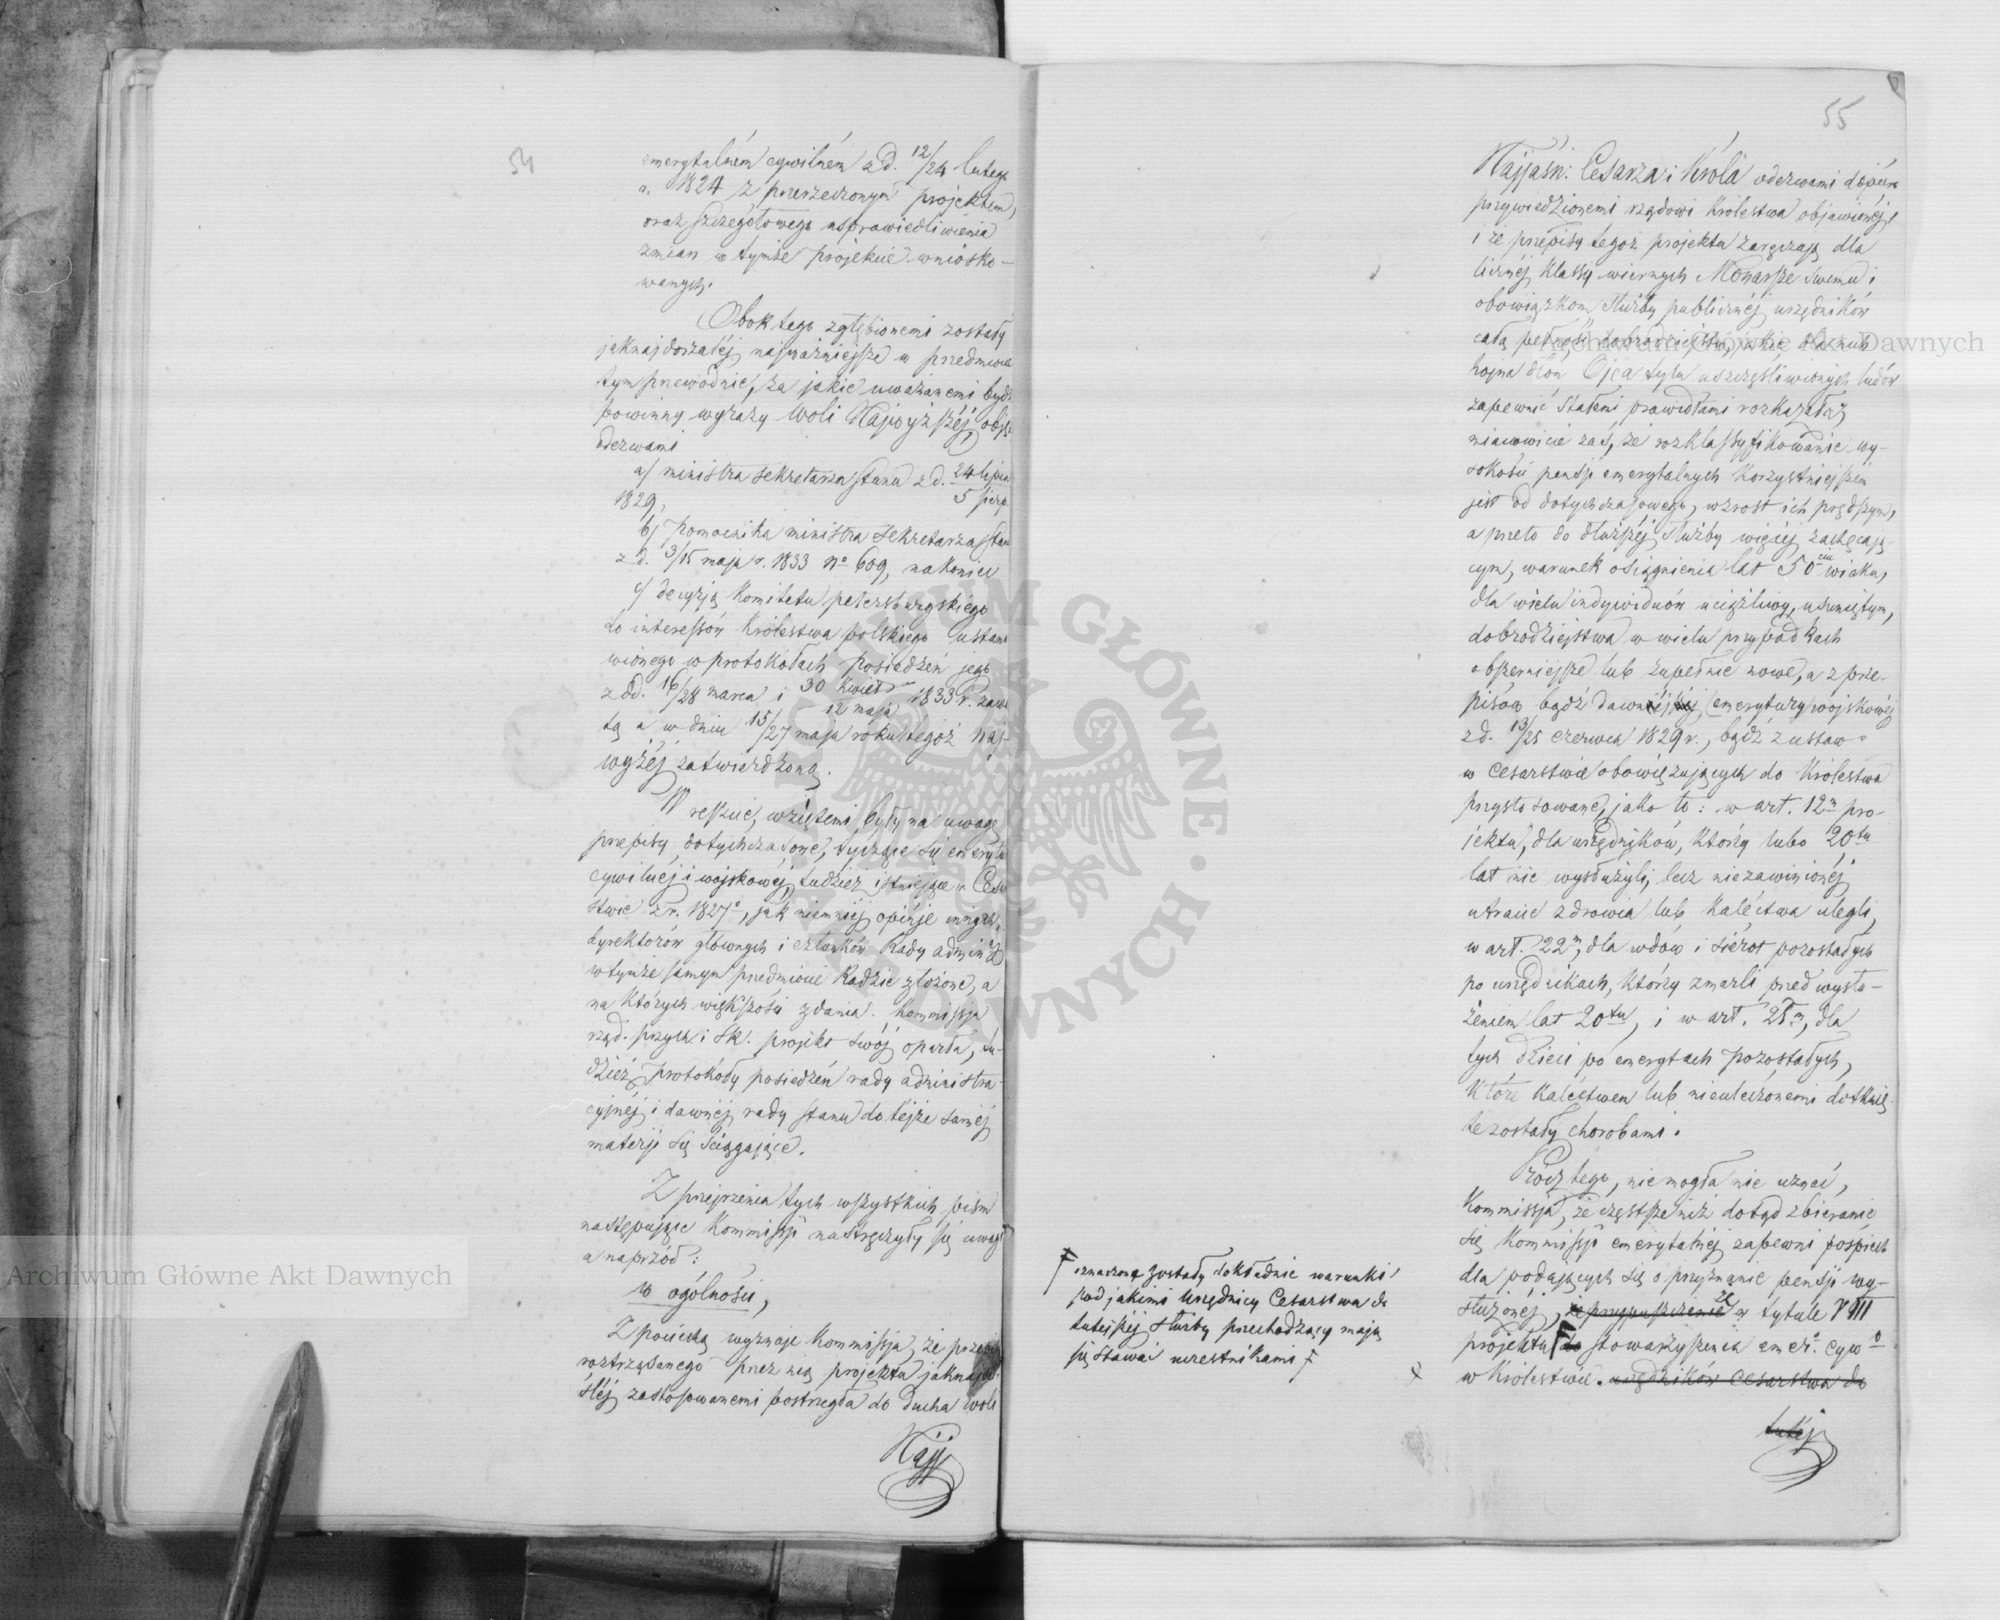 54
emerytalném cywilném z d. 12/24 lutego
r. 1824 z przerzeczonym projektem,
oraz szczegółowego usprawiedliwienia
zmian w tymże projekcie wniosko-
wanych.
Obok tego zgłębionemi zostały
jaknajdoszaléj najważniejsze w przedmiocie
tym przewodnie, za jakie uważanemi bydź
powinny wyrazy woli Najwyższéj, objęte
odezwami
a/ ministra sekretarza stanu z d. 24 lipca
1829, 5 sierp.
b/ pomocnika ministra sekretarza stanu
z d. 3/15 maja r. 1833 No 609, nakoniec
c/ decyzją Komitetu petersburgskiego
do interessów Królestwa polskiego ustano
wionego w protokołach posiedzeń jego
z dd. 16/28 marca i 30 kwiet./12 maja 1833 r. zawar
tą a w dniu 15/27 maja roku tegoż naj-
wyżéj zatwierdzoną.
W reszcie, wziętemi były na uwagę
przepisy dotychczasowe, tyczące się emeryt
cywilnéj i wojskowéj, tudzież istniejące w Cesar
stwie z r. 1827o, jak niemniéj opinje innych
dyrektorów głównych i członków Rady admin
w tymże samym przedmiocie Radzie złożone, a
na których większości zdania Kommissja
rząd. przych. i sk. projekt swój oparła, tu-
dzież protokóły posiedzeń rady administra-
cyjnéj i dawnéj rady stanu do téjże saméj
materji się ściągające.
Z przejrzenia tych wszystkich pism
następujące Kommissji nastręczyły się uwagi
a naprzód:
w ogólności,
Z pociechą wyznaje Kommissja, że przepisy
roztrząsanego przez nią projektu jaknaj
śléj zastosowanemi postrzegła do ducha woli
Najj
55
Najjaśn: Cesarza i Króla odezwami dopiero
przywiedzionemi rządowi Królestwa objawionéj,
i że przepisy tegoż projektu zaręczają dla
licznéj klassy wiernych Monarsze swemu i
obowiązkom służby publicznéj urzędników
całą pełność dobrodziejstw, jakie dla nich
hojna dłoń Ojca tylu uszczęśliwionych ludów
zapewnić stałemi prawidłami rozkazała;
mianowicie zaś, że rozklassyfikowanie wy-
sokości pensji emerytalnych korzystniejszém
jest od dotychczasowego, wzrost ich prędszym,
a przeto do dłuższéj służby więcéj zachęcają-
cym, warunek osiągnienia lat 50ciu wieku,
dla wielu indywiduów uciążliwy, usuniętym,
dobrodziejstwa w wielu przypadkach
obszerniejsze lub zupełnie nowe, a z prze-
pisów bądź dawnéj emerytury wojskowéj
z d. 13/25 czerwca 1829 r., bądź z ustaw
w Cesarstwie obowiązujących do Królestwa
przystosowane, jako to: w art. 12m pro-
jektu, dla urzędników, którzy lubo 20tu
lat nie wysłużyli, lecz niezawinionéj
utracie zdrowia lub kalectwa ulegli,
w art. 22m, dla wdów i sierot pozostałych
po urzędnikach, którzy zmarli przed wysłu-
żeniem lat 20tu, i w art. 25m, dla
tych dzieci po emerytach pozostałych,
które kalectwem lub nieuleczonemi dotknię-
te zostały chorobami.
Prócz tego, nie mogła nie uznać,
Kommissja, że częstsze niż dotąd zbieranie
się Kommissji emerytalnéj zapewni pośpiech
dla podających się o przyznanie pensji wy-
służonéj, że przypuszczenie że w tytule VIII
projektu F do stowarzyszenia emer. cyw.
w Królestwie. urzędników Cesarstwa do
tutéj
F oznaczone zostały dokładnie warunki,
pod jakimi Urzędnicy Cesarstwa do
tutejszéj służby przechodzący mają
się stawać uczestnikami F
Archiwum Główne Akt Dawnych
Archiwum Główne Akt Dawnych
ARCHIWUM GŁÓWNE AKT DAWNYCH